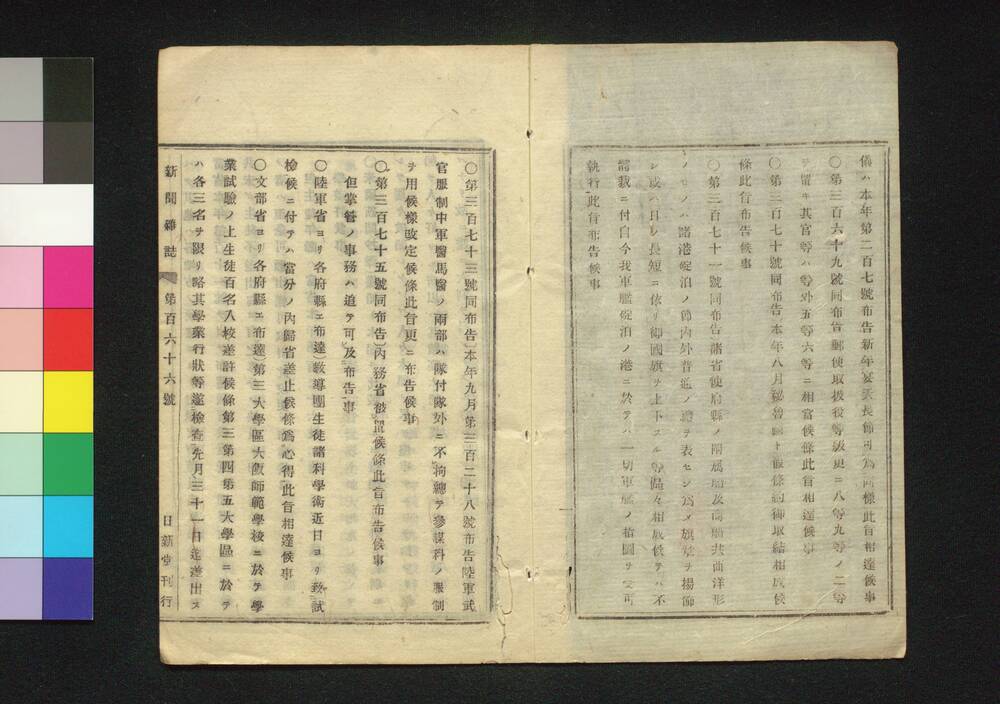 儀ハ本年第二百七號布告新年宴天長節可爲同樣此旨相達候事
〇第三百六十九號同布告郵便取扱役等級更ニ八等九等ノ二等
ヲ置キ其官等ハ等外五等六等ニ相當候條此旨相達候事
〇第三百七十號同布告本年八月秘魯國ト假條約御取結相成候
條此旨布告候事
〇第三百七十一號同布告諸省使府縣ノ附屬船及商船共西洋形
ノモノハ諸港碇泊ノ節内外普通ノ禮ヲ表セン爲メ旗章ヲ揚卸
シ或ハ日ノ長短ニ依リ御國旗ヲ上下スル等區々相成候テハ不
都裁ニ付自今我軍艦碇泊ノ港ニ於テハ一切軍艦ノ指圖ヲ受可
執行此旨布告候事
〇第三百七十三號同布告)本年九月第三百二十八號布告陸軍武
官服制中軍醫馬醫ノ兩部ハ隊付隊外ニ不拘總テ參謀科ノ服制
ヲ用候樣改定候條此旨更ニ布告候事
〇第三百七十五號同布告)内務省被置候條此旨布告候事
但掌管ノ事務ハ追テ可及布告事
〇陸軍省ヨリ各府縣エ布達)敎導團生徒諸科學術近日ヨリ致試
檢候ニ付テハ當分ノ内歸省差止候條爲心得此旨相達候事
〇文部省ヨリ各府縣エ布達)第三大學區大阪師範學校ニ於テ學
業試驗ノ上生徒百名入校差許候條第三第四第五大學區ニ於テ
ハ各三名ヲ限リ略其學業行狀等遂檢査先月三十一日迄差出ス
新聞雜誌 第百六十六號 日新堂刊行